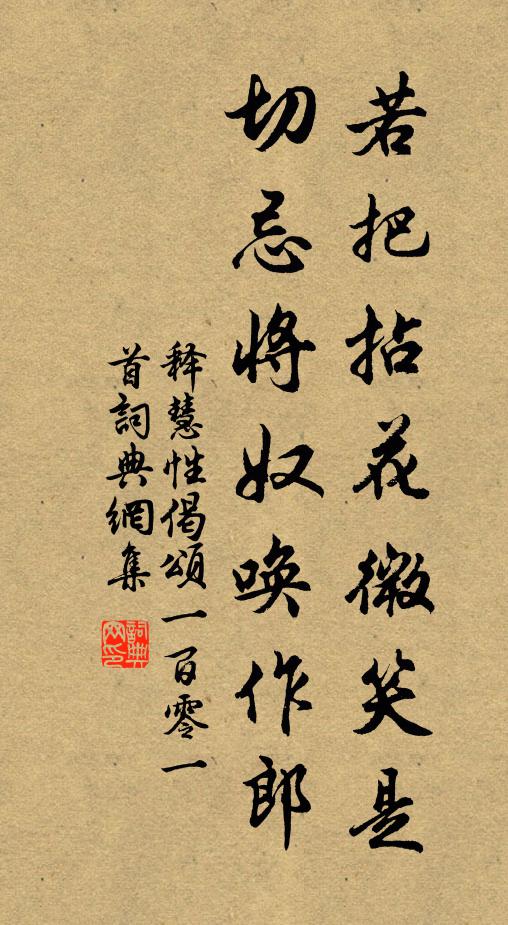 若把拈花微笑是
切忌將奴喚作郎
釋慧性偈頌一百零一
首詞典網集
詞典
网印